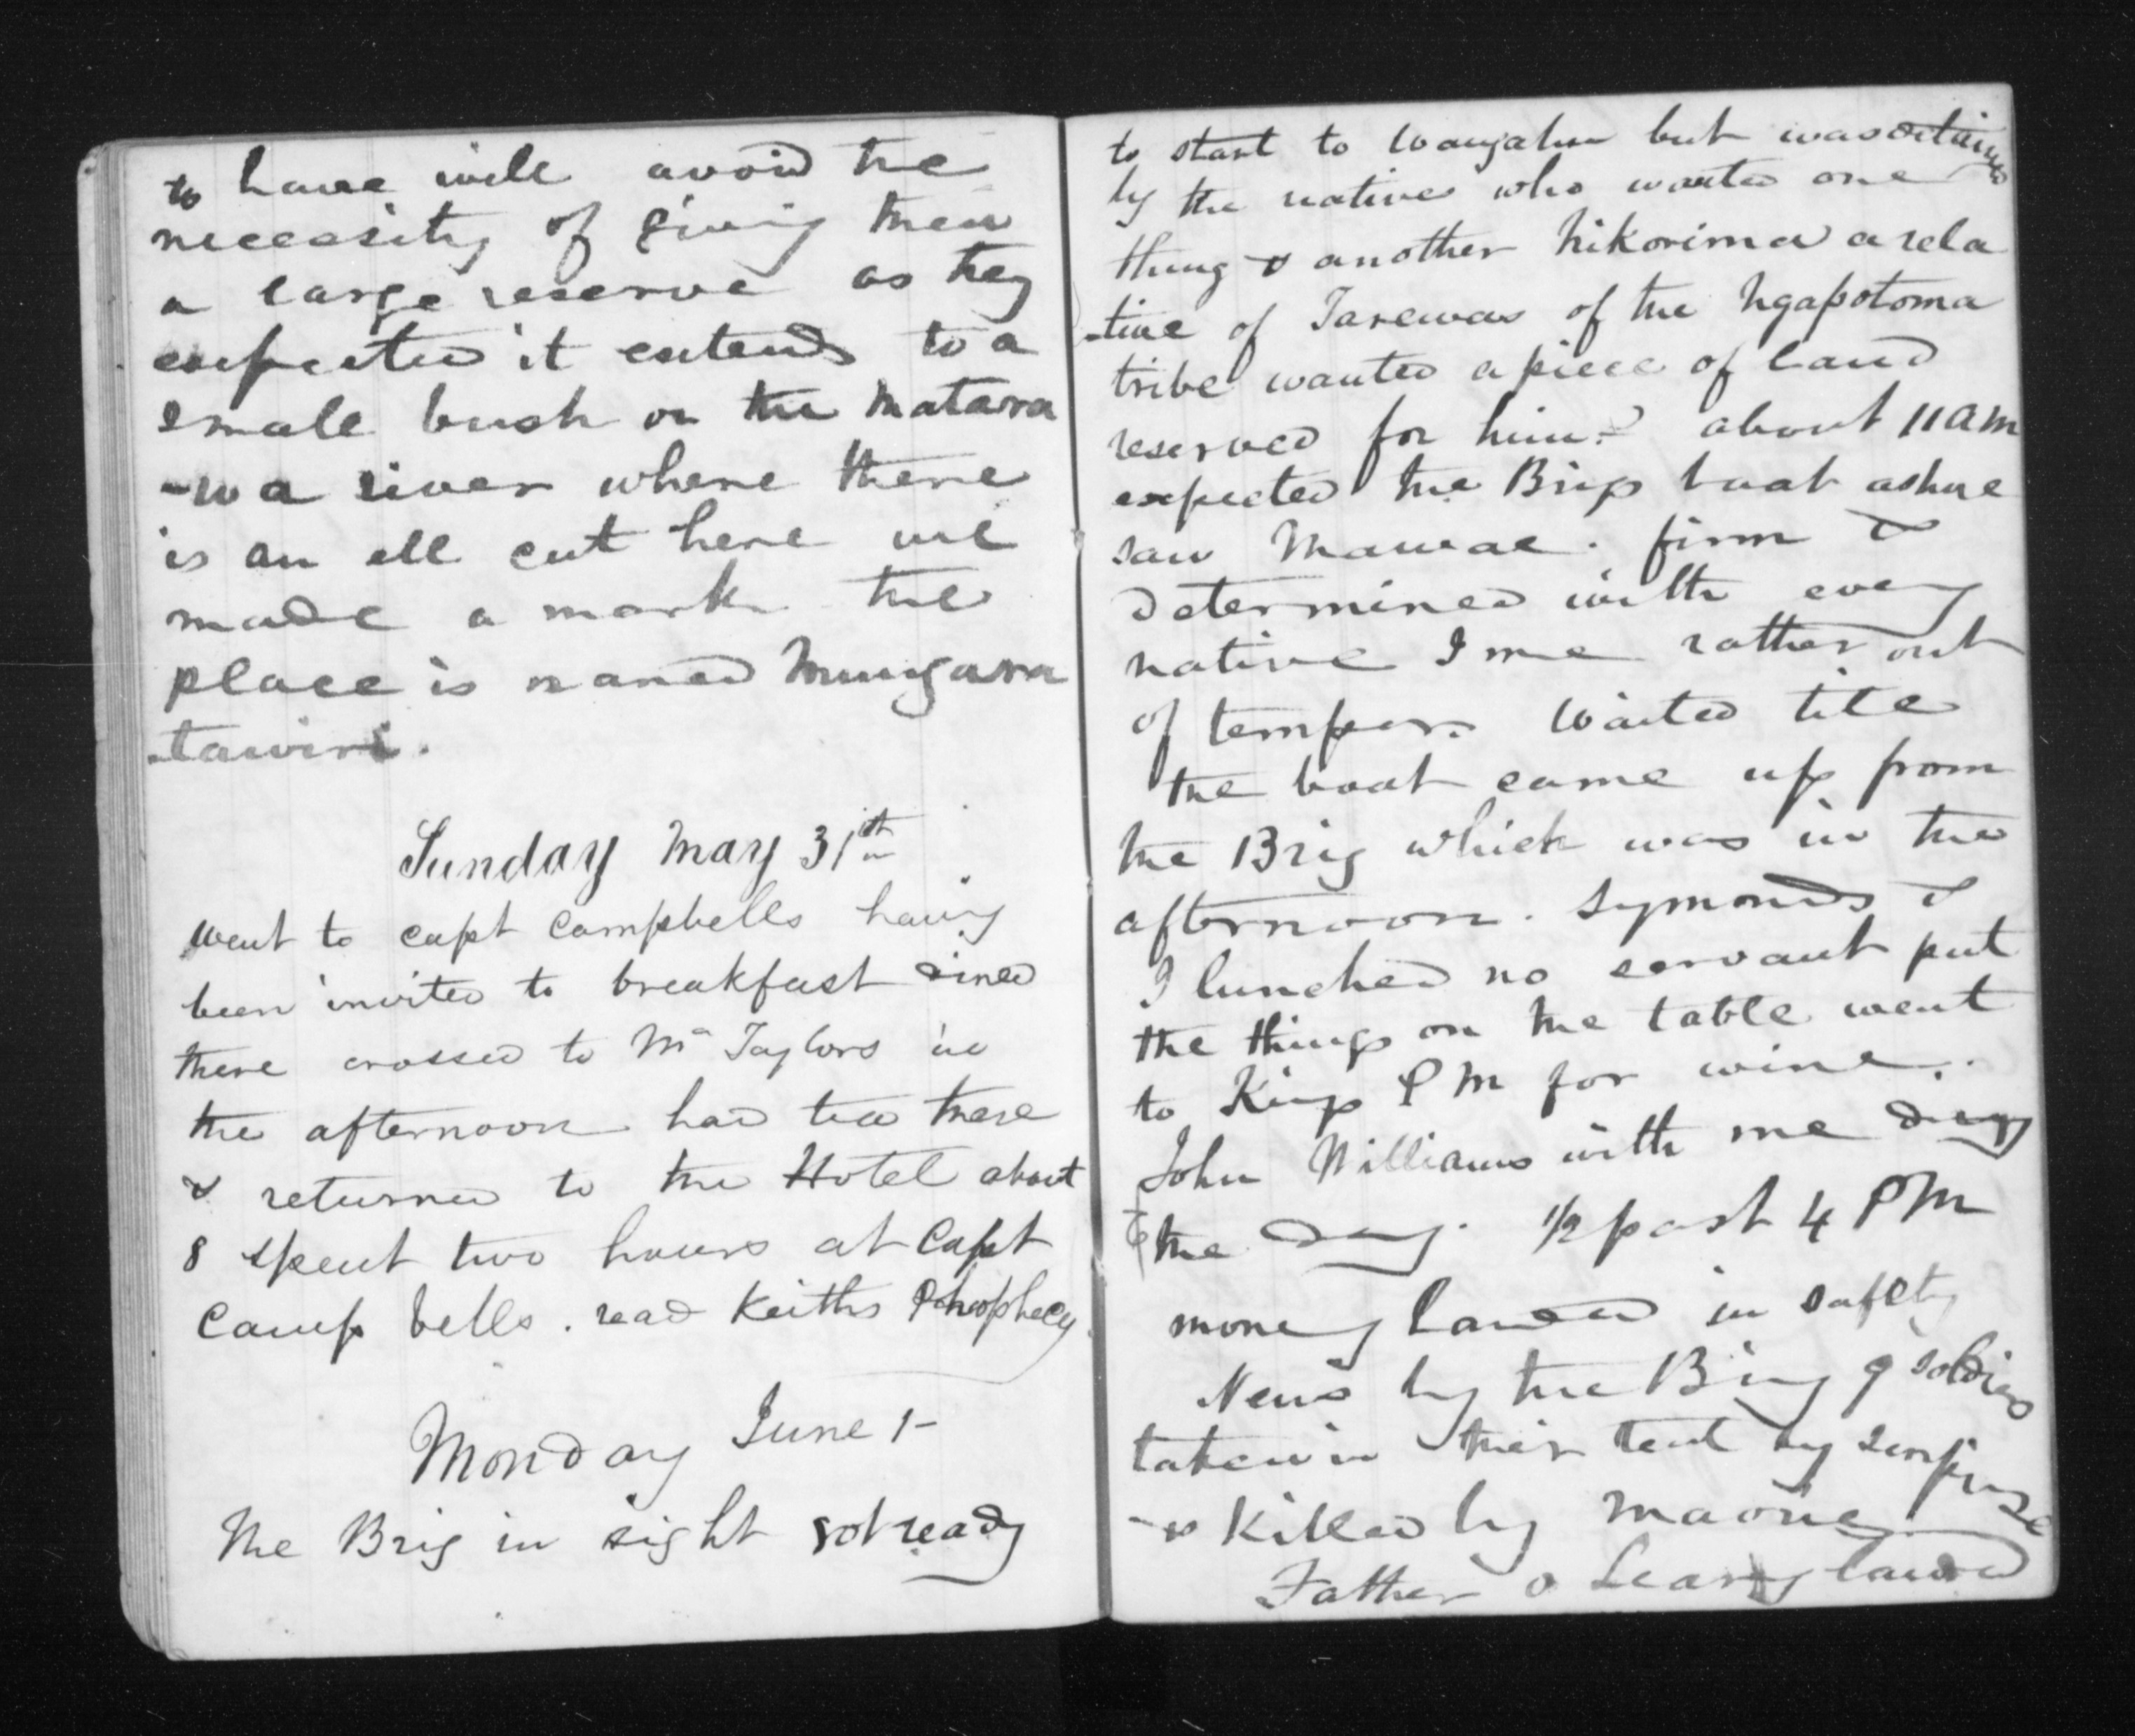 to have will avoid the
necessity of giving them
a large reserve as they
expected it extends to a
small bush on the Matara
-wa river where there
is an ell cut here we
made a mark the
place is named Mungara
-tawiri.
Sunday May 31th
went to capt Campbells having
been invited to breakfast dined
there crossed to Mr Taylors in
the afternoon had tea there
& returned to the Hotel about
8 spent two hours at Capt
Camp bells. read Keiths Phophecy
Monday June 1-
The Brig in sight got ready
to start to Wangahu but was detained
by the natives who wanted one
thing & another hikorima a rela
-tive of Tarewas of the Ngapotoma
tribe wanted a piece of land
reserved for him. about 11 am
expected the Brigs boat ashore
saw Mawae. firm &
determined with every
native I me rather out
of temper. Waited till
the boat came up from
the Brig which was in the
afternoon. Symonds &
I lunched no servant put
the things on the table went
to Kings PM for wine.
John Williams with me
the day. 1/2 past 4 PM
money landed in safety
News by the Brig 9 soldiers
taken in their tent by surprise
& Killed by maories
Father o Leary landed